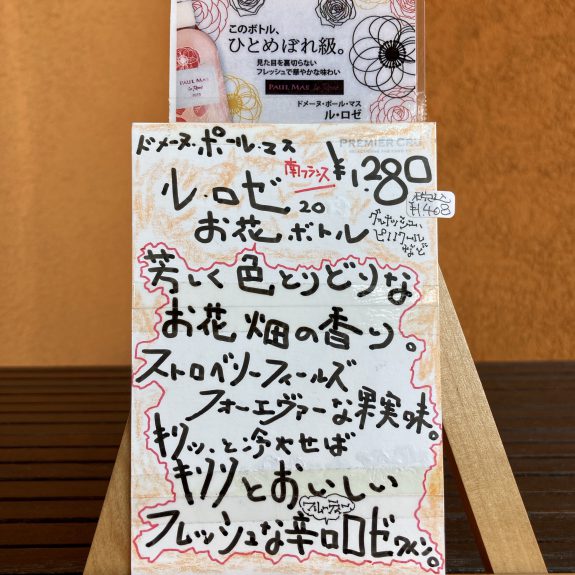 このボトル、
ひとめぼれ級。
見た目を裏切らない
フレッシュで華やかな味わい
PAUL MAS Le Rosé
ドメーヌ・ポール・マス
ル・ロゼ
PREMIER CRU
ドメーヌ・ポール・マス
南フランス
¥1,280
税込
¥1,408
ル・ロゼ 20
お花ボトル
グルナッシュ、
ピノノワール
など
芳しく色とりどりな
お花畑の香り。
ストロベリーフィールズ
フォーエヴァーな果実味。
キリッ、と冷やせば
キリリとおいしい
フルーティー
フレッシュな辛口ロゼワイン。